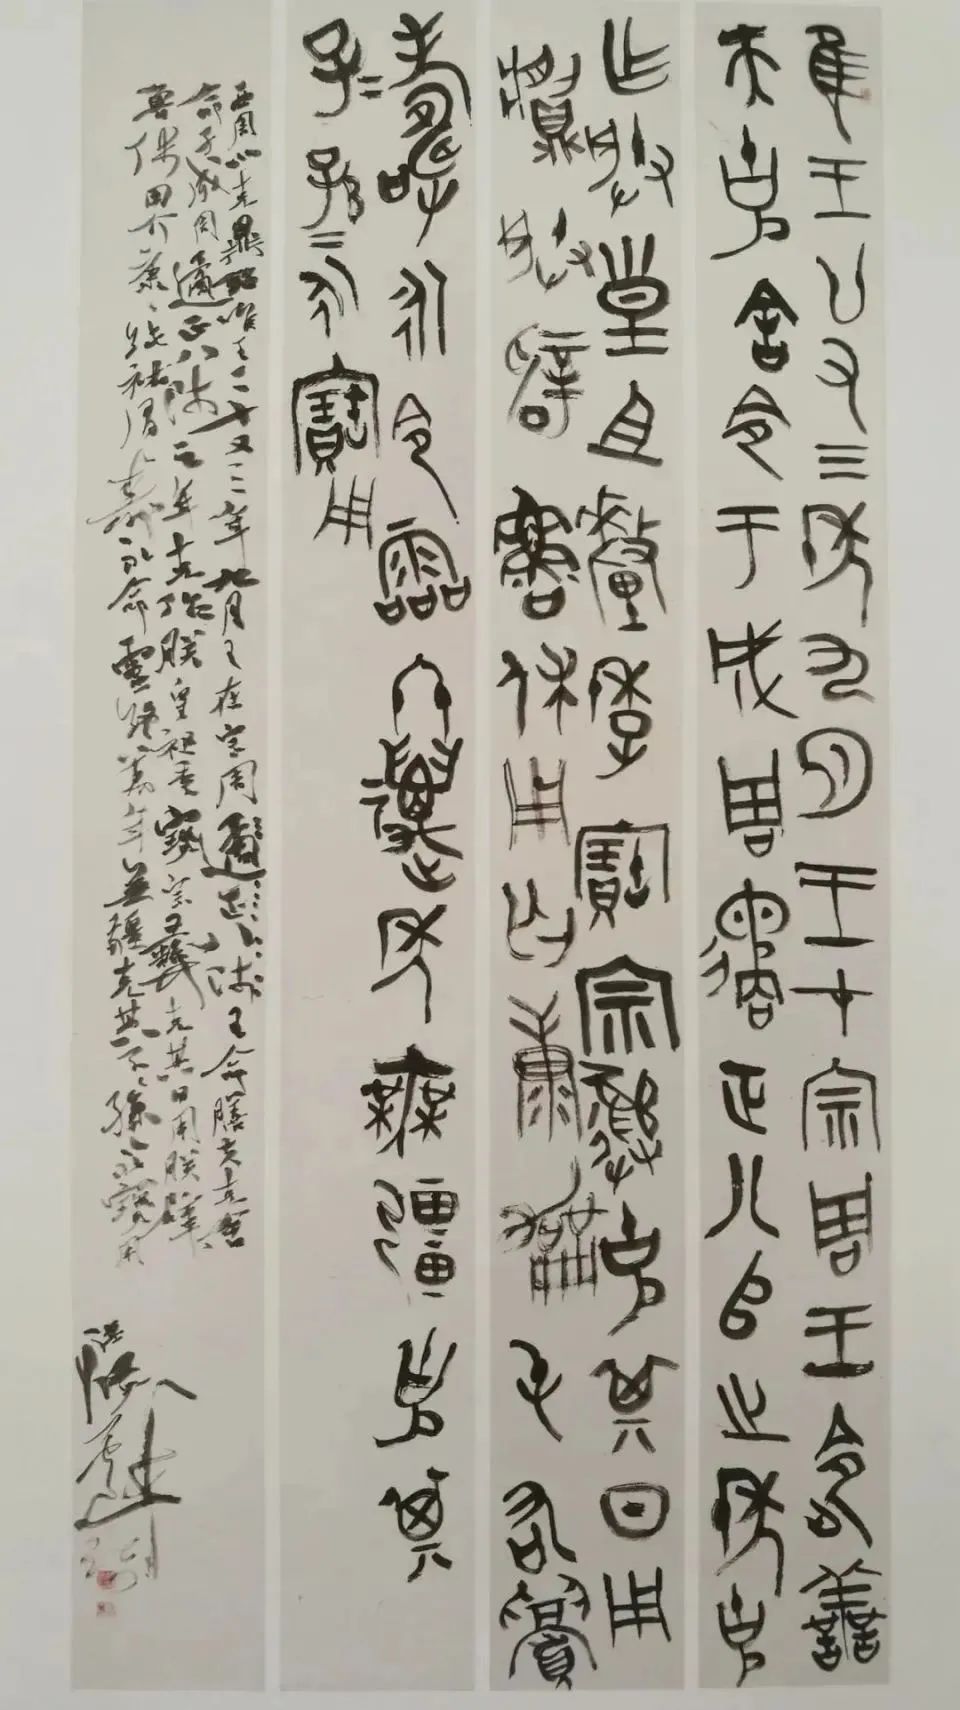 隹王廿又三年九月王才宗周王令善
夫克舍令于成周遹正八𠂤之年克
乍朕皇且釐季寶宗彝克其日用
朕辟魯休用匄康屯右眉
壽永令霝冬萬年無疆克其
子＝孫＝永寶用
西周小克鼎銘唯王二十又三年九月王在宗周遹正八師王命膳夫克舍
命于成周遹正八師之年克作朕皇祖釐寶宗彝克其日用朕辟
魯休用匄康純祐眉壽永命靈終萬年無疆克其子〻孫〻永寶用